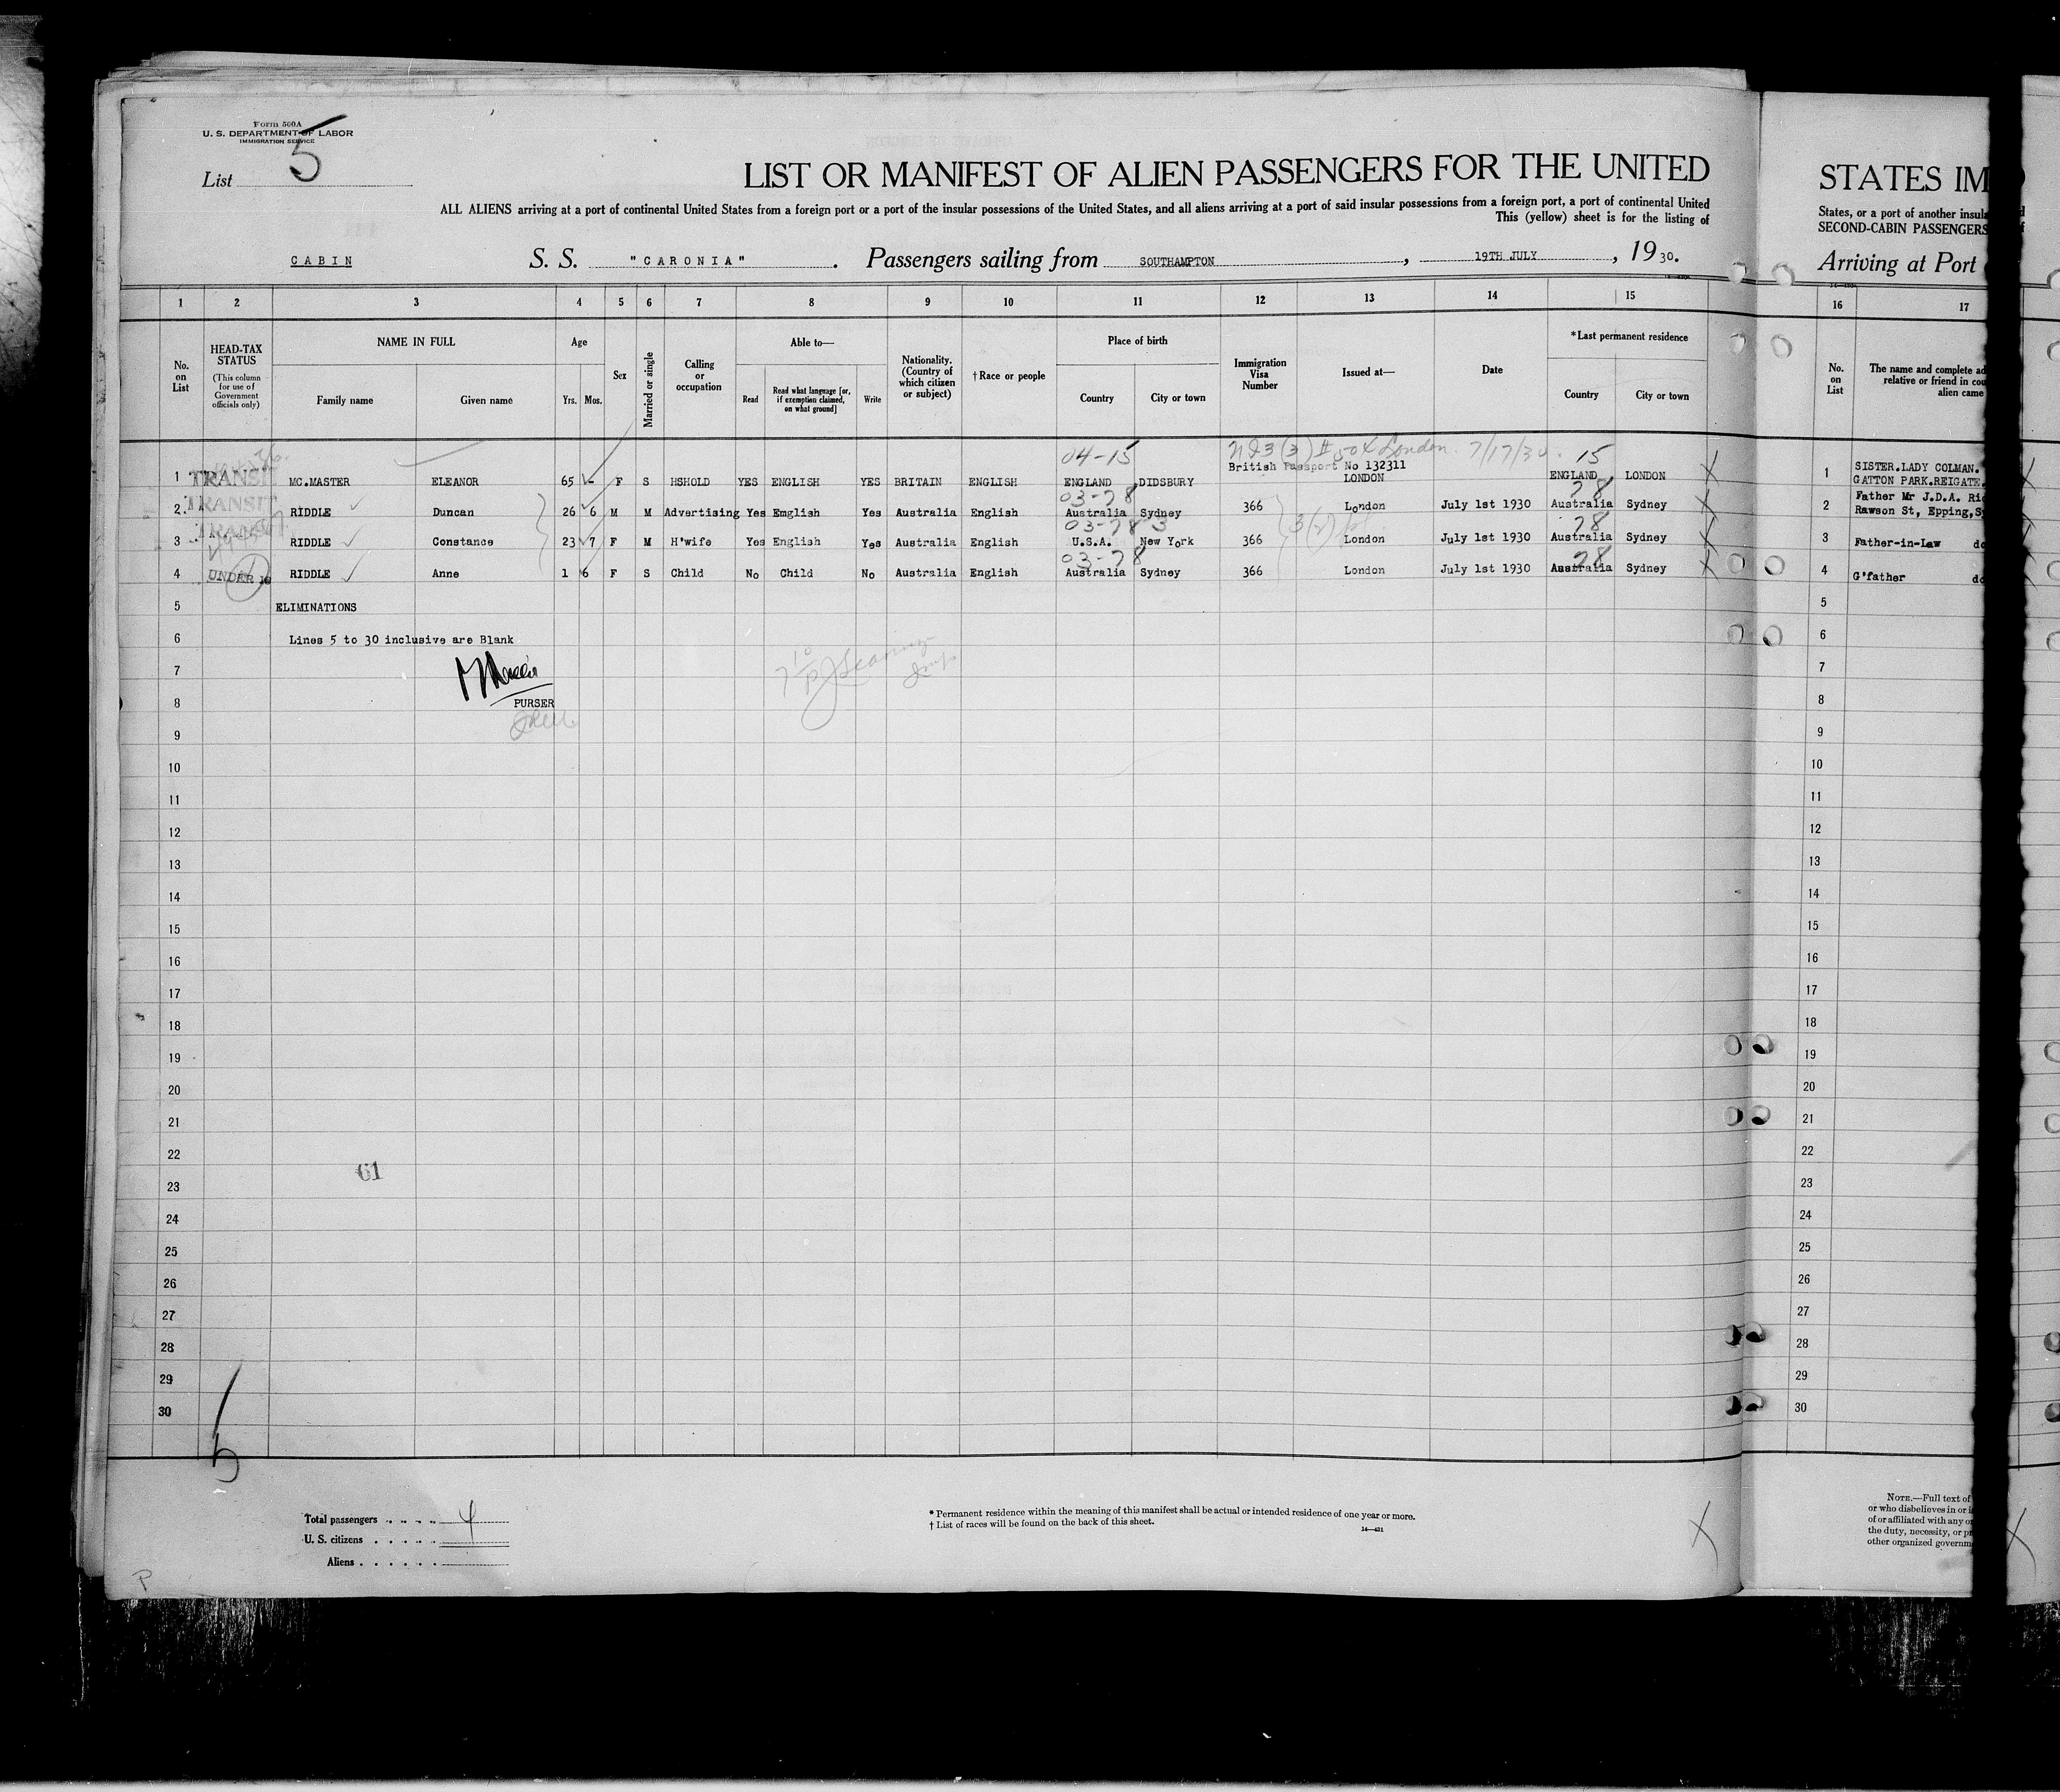 Form 500A
U. S. DEPARTMENT OF LABOR
IMMIGRATION SERVICE
List 5
LIST OR MANIFEST OF ALIEN PASSENGERS FOR THE UNITED
ALL ALIENS arriving at a port of continental United States from a foreign port or a port of the insular possessions of the United States, and all aliens arriving at a port of said insular possessions from a foreign port, a port of continental United
This (yellow) sheet is for the listing of
CABIN S. S. "CARONIA". Passengers sailing from SOUTHAMPTON, 19TH JULY, 1930.
STATES IM
States, or a port of another insula
SECOND-CABIN PASSENGERS
Arriving at Port
1 2 3 4 5 6 7 8 9 10 11 12 13 14 15 16 17
No. on List
HEAD-TAX STATUS
(This column for use of Government officials only)
NAME IN FULL
Family name
Given name
Age
Yrs. Mos.
Sex
Married or single
Calling or occupation
Able to—
Read
Read what language [or, if exemption claimed, on what ground]
Write
Nationality. (Country of which citizen or subject)
†Race or people
Place of birth
Country
City or town
Immigration Visa Number
Issued at—
Date
*Last permanent residence
Country
City or town
No. on List
The name and complete ad
relative or friend in cou
alien came
04-15 London. 7/17/30. 15
British Passport No 132311
1 TRANSIT MC.MASTER ELEANOR 65 - F S HSHOLD YES ENGLISH YES BRITAIN ENGLISH ENGLAND DIDSBURY LONDON ENGLAND LONDON
03-78 78
2 TRANSIT RIDDLE Duncan 26 6 M M Advertising Yes Emglish Yes Australia English Australia Sydney 366 London July 1st 1930 Australia Sydney
03-78 3 78
3 TRANSIT RIDDLE Constance 23 7 F M H'wife Yes English Yes Australia English U.S.A. New York 366 London July 1st 1930 Australia Sydney
03-78 78
4 UNDER 16 RIDDLE Anne 1 6 F S Child No Child No Australia English Australia Sydney 366 London July 1st 1930 Australia Sydney
1 SISTER.LADY COLMAN.
GATTON PARK.REIGATE.
2 Father Mr J.D.A. Ri
Rawson St, Epping,S
3 Father-in-Law do
4 G'father do
5 ELIMINATIONS 5
6 Lines 5 to 30 inclusive are Blank 6
7 7
8 PURSER 8
9 9
10 10
11 11
12 12
13 13
14 14
15 15
16 16
17 17
18 18
19 19
20 20
21 21
22 22
61
23 23
24 24
25 25
26 26
27 27
28 28
29 29
30 30
5
Total passengers . . . . 4
U. S. citizens . . . . .
Aliens . . . . . .
* Permanent residence within the meaning of this manifest shall be actual or intended residence of one year or more.
† List of races will be found on the back of this sheet.
14—431
NOTE.—Full text of
or who disbelieves in or i
of or affiliated with any o
the duty, necessity, or p
other organized governm
P